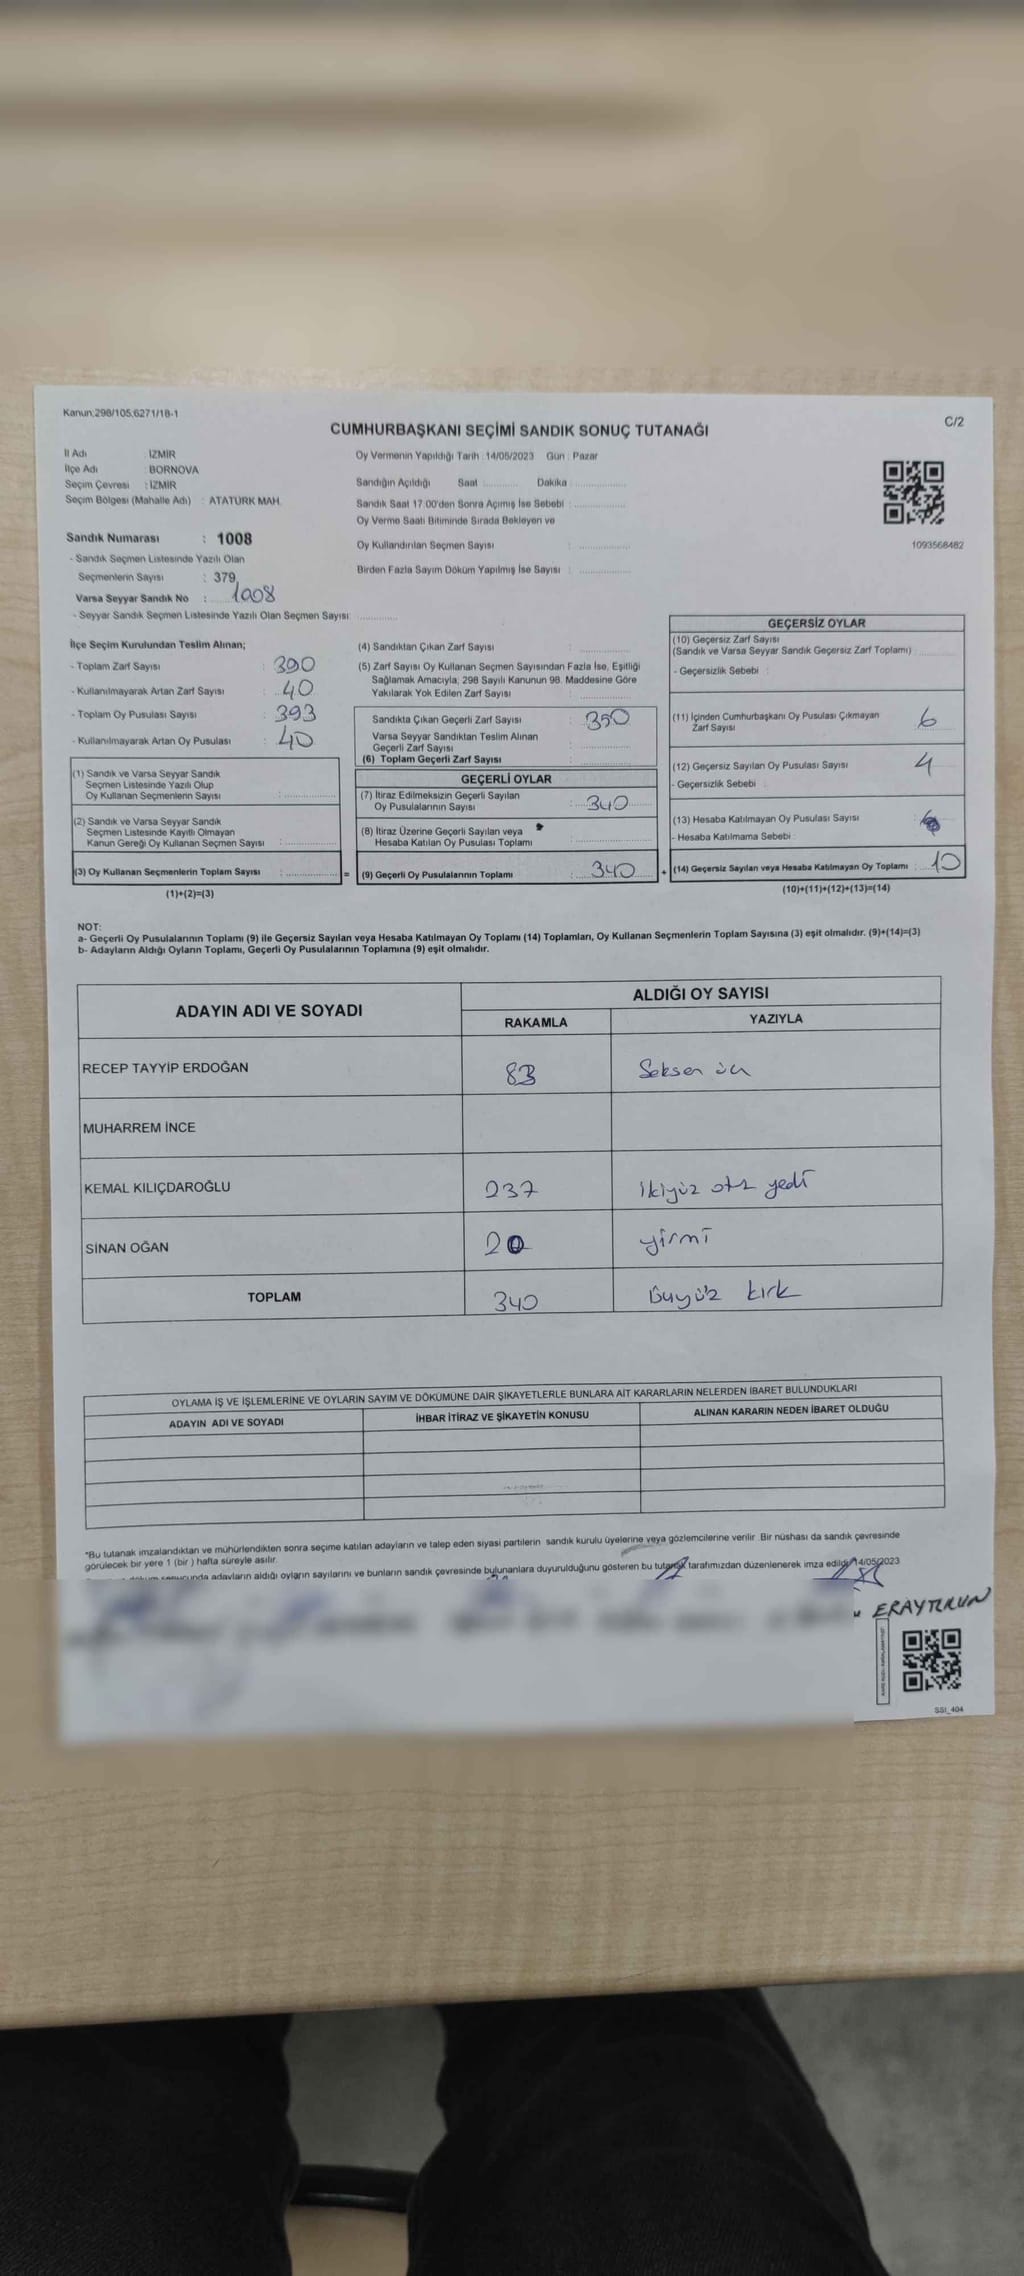 Kanun;298/105,6271/18-1
C/2
CUMHURBAŞKANI SEÇİMİ SANDIK SONUÇ TUTANAĞI
İl Adı : İZMİR
İlçe Adı : BORNOVA
Seçim Çevresi : İZMİR
Seçim Bölgesi (Mahalle Adı) : ATATÜRK MAH.
Sandık Numarası : 1008
- Sandık Seçmen Listesinde Yazılı Olan
Seçmenlerin Sayısı : 379
Varsa Seyyar Sandık No : 1008
- Seyyar Sandık Seçmen Listesinde Yazılı Olan Seçmen Sayısı :
Oy Vermenin Yapıldığı Tarih : 14/05/2023 Gün : Pazar
Sandığın Açıldığı Saat : Dakika :
Sandık Saat 17:00'den Sonra Açımış İse Sebebi :
Oy Verme Saati Bitiminde Sırada Bekleyen ve
Oy Kullandırılan Seçmen Sayısı :
Birden Fazla Sayım Döküm Yapılmış İse Sayısı :
1093568482
İlçe Seçim Kurulundan Teslim Alınan;
- Toplam Zarf Sayısı : 390
- Kullanılmayarak Artan Zarf Sayısı : 40
- Toplam Oy Pusulası Sayısı : 393
- Kullanılmayarak Artan Oy Pusulası : 40
(1) Sandık ve Varsa Seyyar Sandık
Seçmen Listesinde Yazılı Olup
Oy Kullanan Seçmenlerin Sayısı :
(2) Sandık ve Varsa Seyyar Sandık
Seçmen Listesinde Kayıtlı Olmayan
Kanun Gereği Oy Kullanan Seçmen Sayısı :
(3) Oy Kullanan Seçmenlerin Toplam Sayısı : =
(1)+(2)=(3)
(4) Sandıktan Çıkan Zarf Sayısı :
(5) Zarf Sayısı Oy Kullanan Seçmen Sayısından Fazla İse, Eşitliği
Sağlamak Amacıyla; 298 Sayılı Kanunun 98. Maddesine Göre
Yakılarak Yok Edilen Zarf Sayısı :
Sandıkta Çıkan Geçerli Zarf Sayısı : 350
Varsa Seyyar Sandıktan Teslim Alınan
Geçerli Zarf Sayısı :
(6) Toplam Geçerli Zarf Sayısı :
GEÇERLİ OYLAR
(7) İtiraz Edilmeksizin Geçerli Sayılan
Oy Pusulalarının Sayısı : 340
(8) İtiraz Üzerine Geçerli Sayılan veya
Hesaba Katılan Oy Pusulası Toplamı :
(9) Geçerli Oy Pusulalarının Toplamı : 340 +
GEÇERSİZ OYLAR
(10) Geçersiz Zarf Sayısı
(Sandık ve Varsa Seyyar Sandık Geçersiz Zarf Toplamı) :
- Geçersizlik Sebebi :
(11) İçinden Cumhurbaşkanı Oy Pusulası Çıkmayan
Zarf Sayısı 6
(12) Geçersiz Sayılan Oy Pusulası Sayısı 4
- Geçersizlik Sebebi :
(13) Hesaba Katılmayan Oy Pusulası Sayısı :
- Hesaba Katılmama Sebebi :
(14) Geçersiz Sayılan veya Hesaba Katılmayan Oy Toplamı : 10
(10)+(11)+(12)+(13)=(14)
NOT:
a- Geçerli Oy Pusulalarının Toplamı (9) ile Geçersiz Sayılan veya Hesaba Katılmayan Oy Toplamı (14) Toplamları, Oy Kullanan Seçmenlerin Toplam Sayısına (3) eşit olmalıdır. (9)+(14)=(3)
b- Adayların Aldığı Oyların Toplamı, Geçerli Oy Pusulalarının Toplamına (9) eşit olmalıdır.
ADAYIN ADI VE SOYADI
ALDIĞI OY SAYISI
RAKAMLA YAZIYLA
RECEP TAYYİP ERDOĞAN 83 Seksen üç
MUHARREM İNCE
KEMAL KILIÇDAROĞLU 237 ikiyüz otz yedi
SİNAN OĞAN 20 yirmi
TOPLAM 340 üçyüz kırk
OYLAMA İŞ VE İŞLEMLERİNE VE OYLARIN SAYIM VE DÖKÜMÜNE DAİR ŞİKAYETLERLE BUNLARA AİT KARARLARIN NELERDEN İBARET BULUNDUKLARI
ADAYIN ADI VE SOYADI İHBAR İTİRAZ VE ŞİKAYETİN KONUSU ALINAN KARARIN NEDEN İBARET OLDUĞU
"Bu tutanak imzalandıktan ve mühürlendikten sonra seçime katılan adayların ve talep eden siyasi partilerin sandık kurulu üyelerine veya gözlemcilerine verilir. Bir nüshası da sandık çevresinde
görülecek bir yere 1 (bir ) hafta süreyle asılır.
döküm sonucunda adayların aldığı oyların sayılarını ve bunların sandık çevresinde bulunanlara duyurulduğunu gösteren bu tutanak tarafımızdan düzenlenerek imza edildi. 14/05/2023
ERAY TURUN
SSI_404